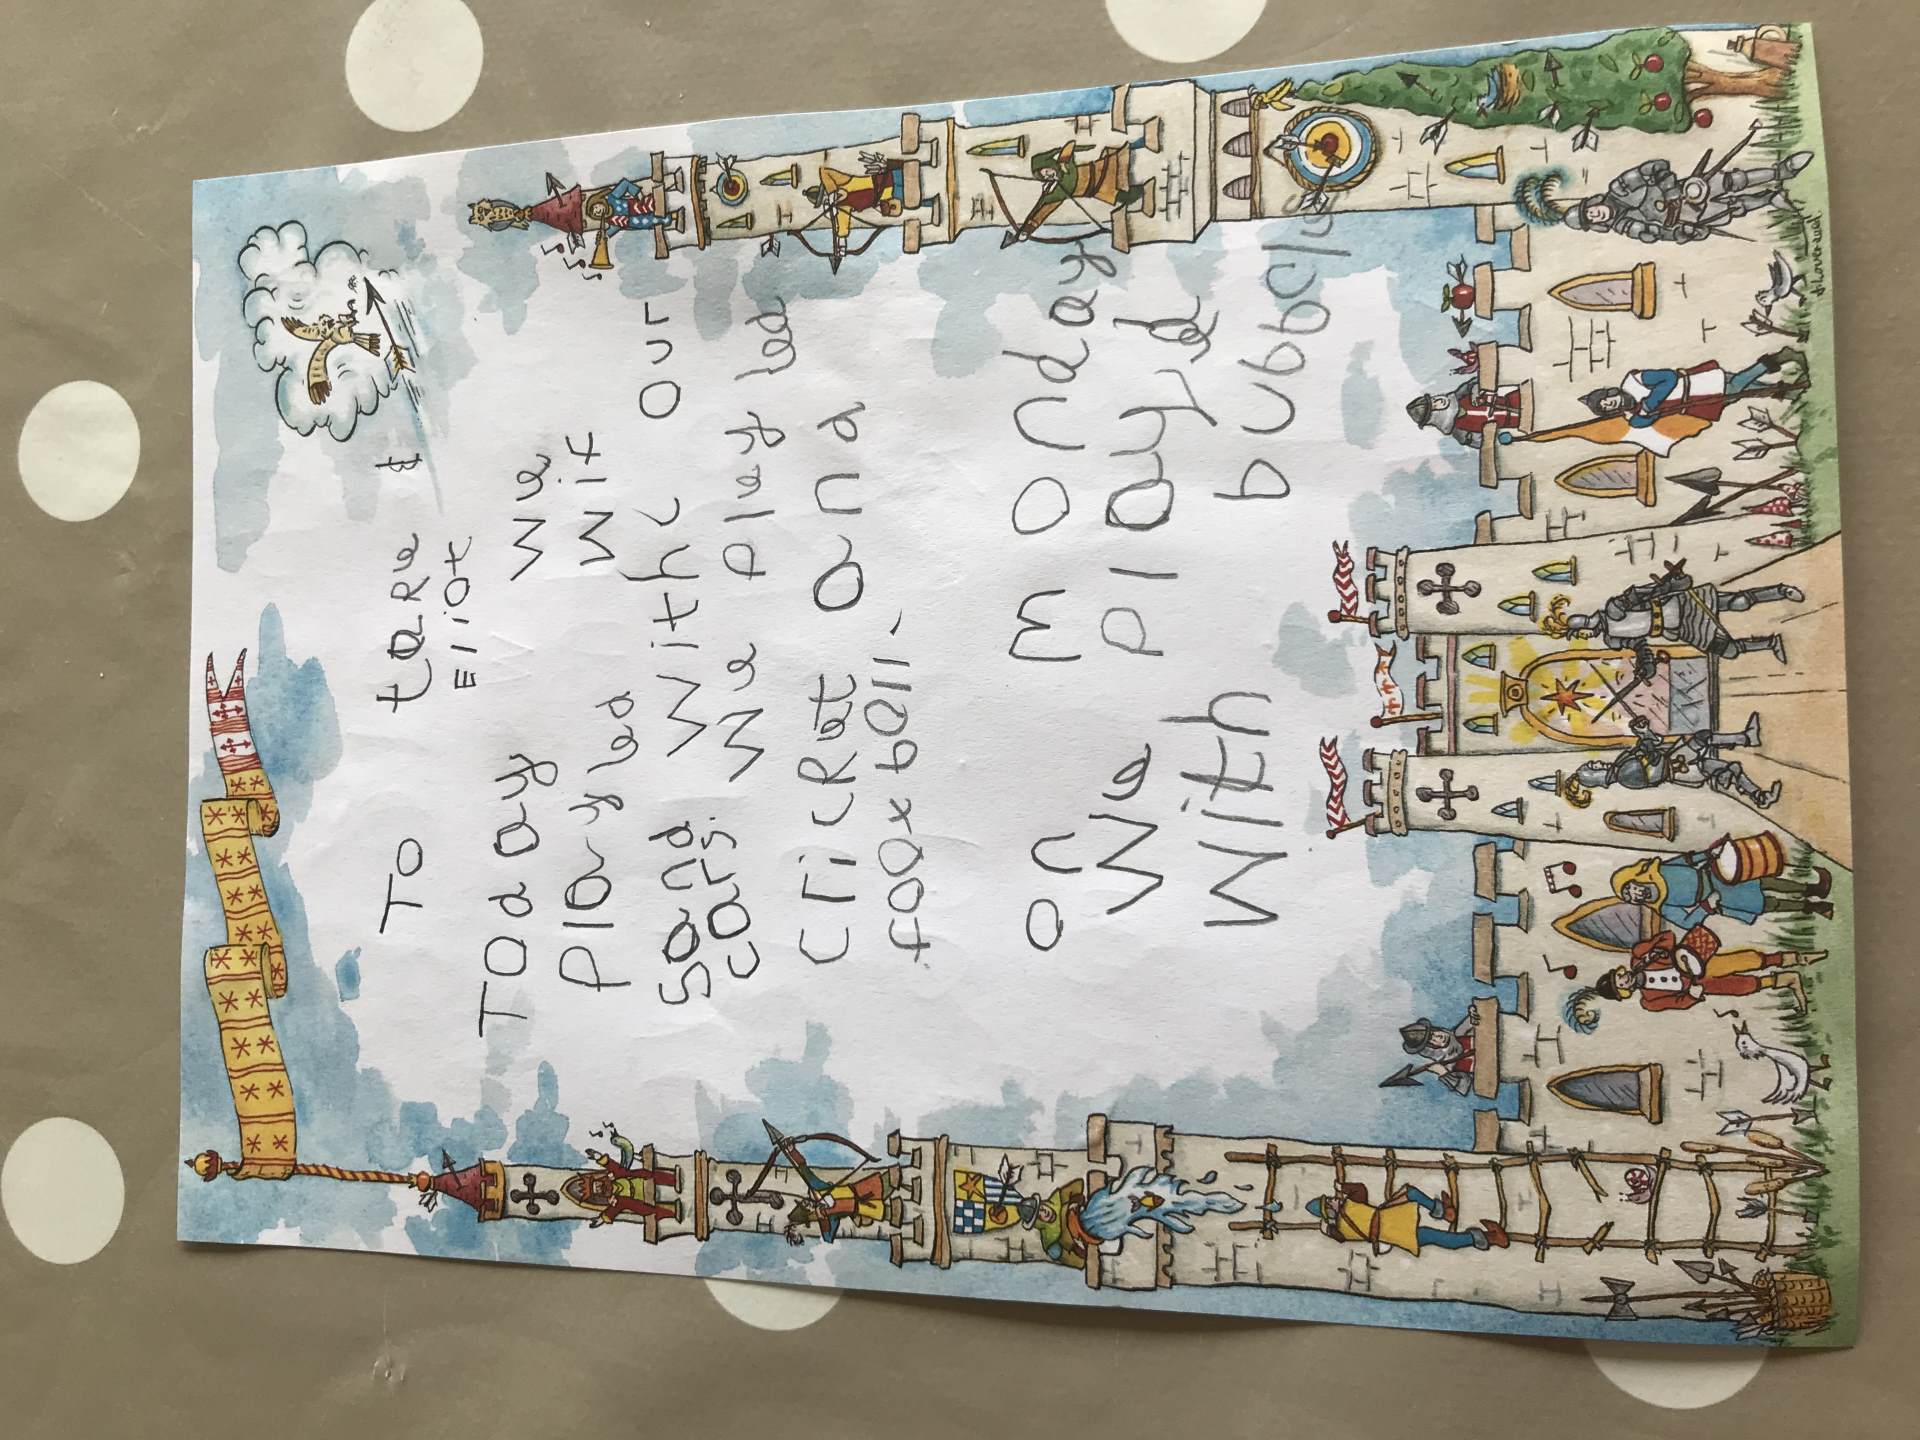 To tare &
Eliot
Today we
played wit
sand with our
cars. We played
cricket and
foox ball
on monday
We playd
With bubbcls